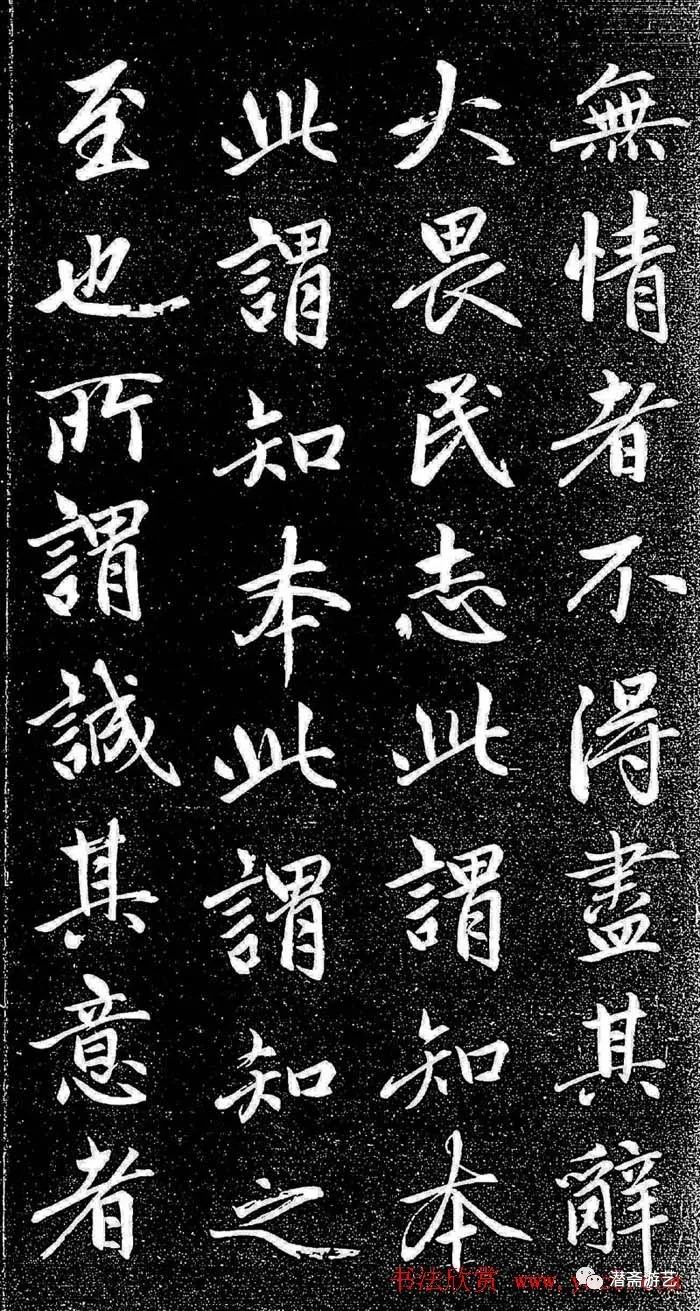 無情者不得盡其辭
大畏民志此謂知本
此謂知本此謂知之
至也所謂誠其意者
书法欣赏 www.y
潜斋游艺